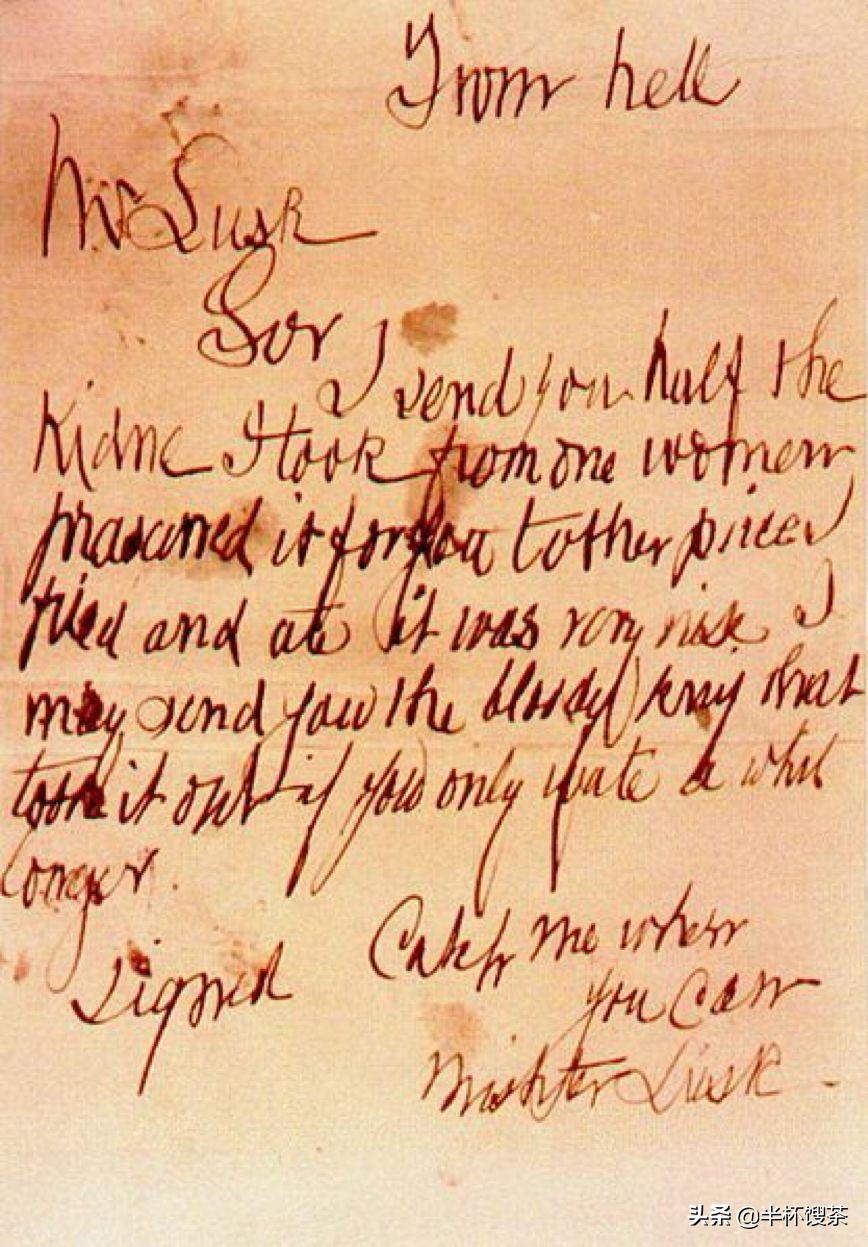 From hell
Mr Lusk
Sor
I send you half the
Kidne I took from one women
prasarved it for you tother piece I
fried and ate it was very nise I
may send you the bloody knif that
took it out if you only wate a whil
longer.
signed Catch me when
you Can
Mishter Lusk -
头条 @半杯馊茶